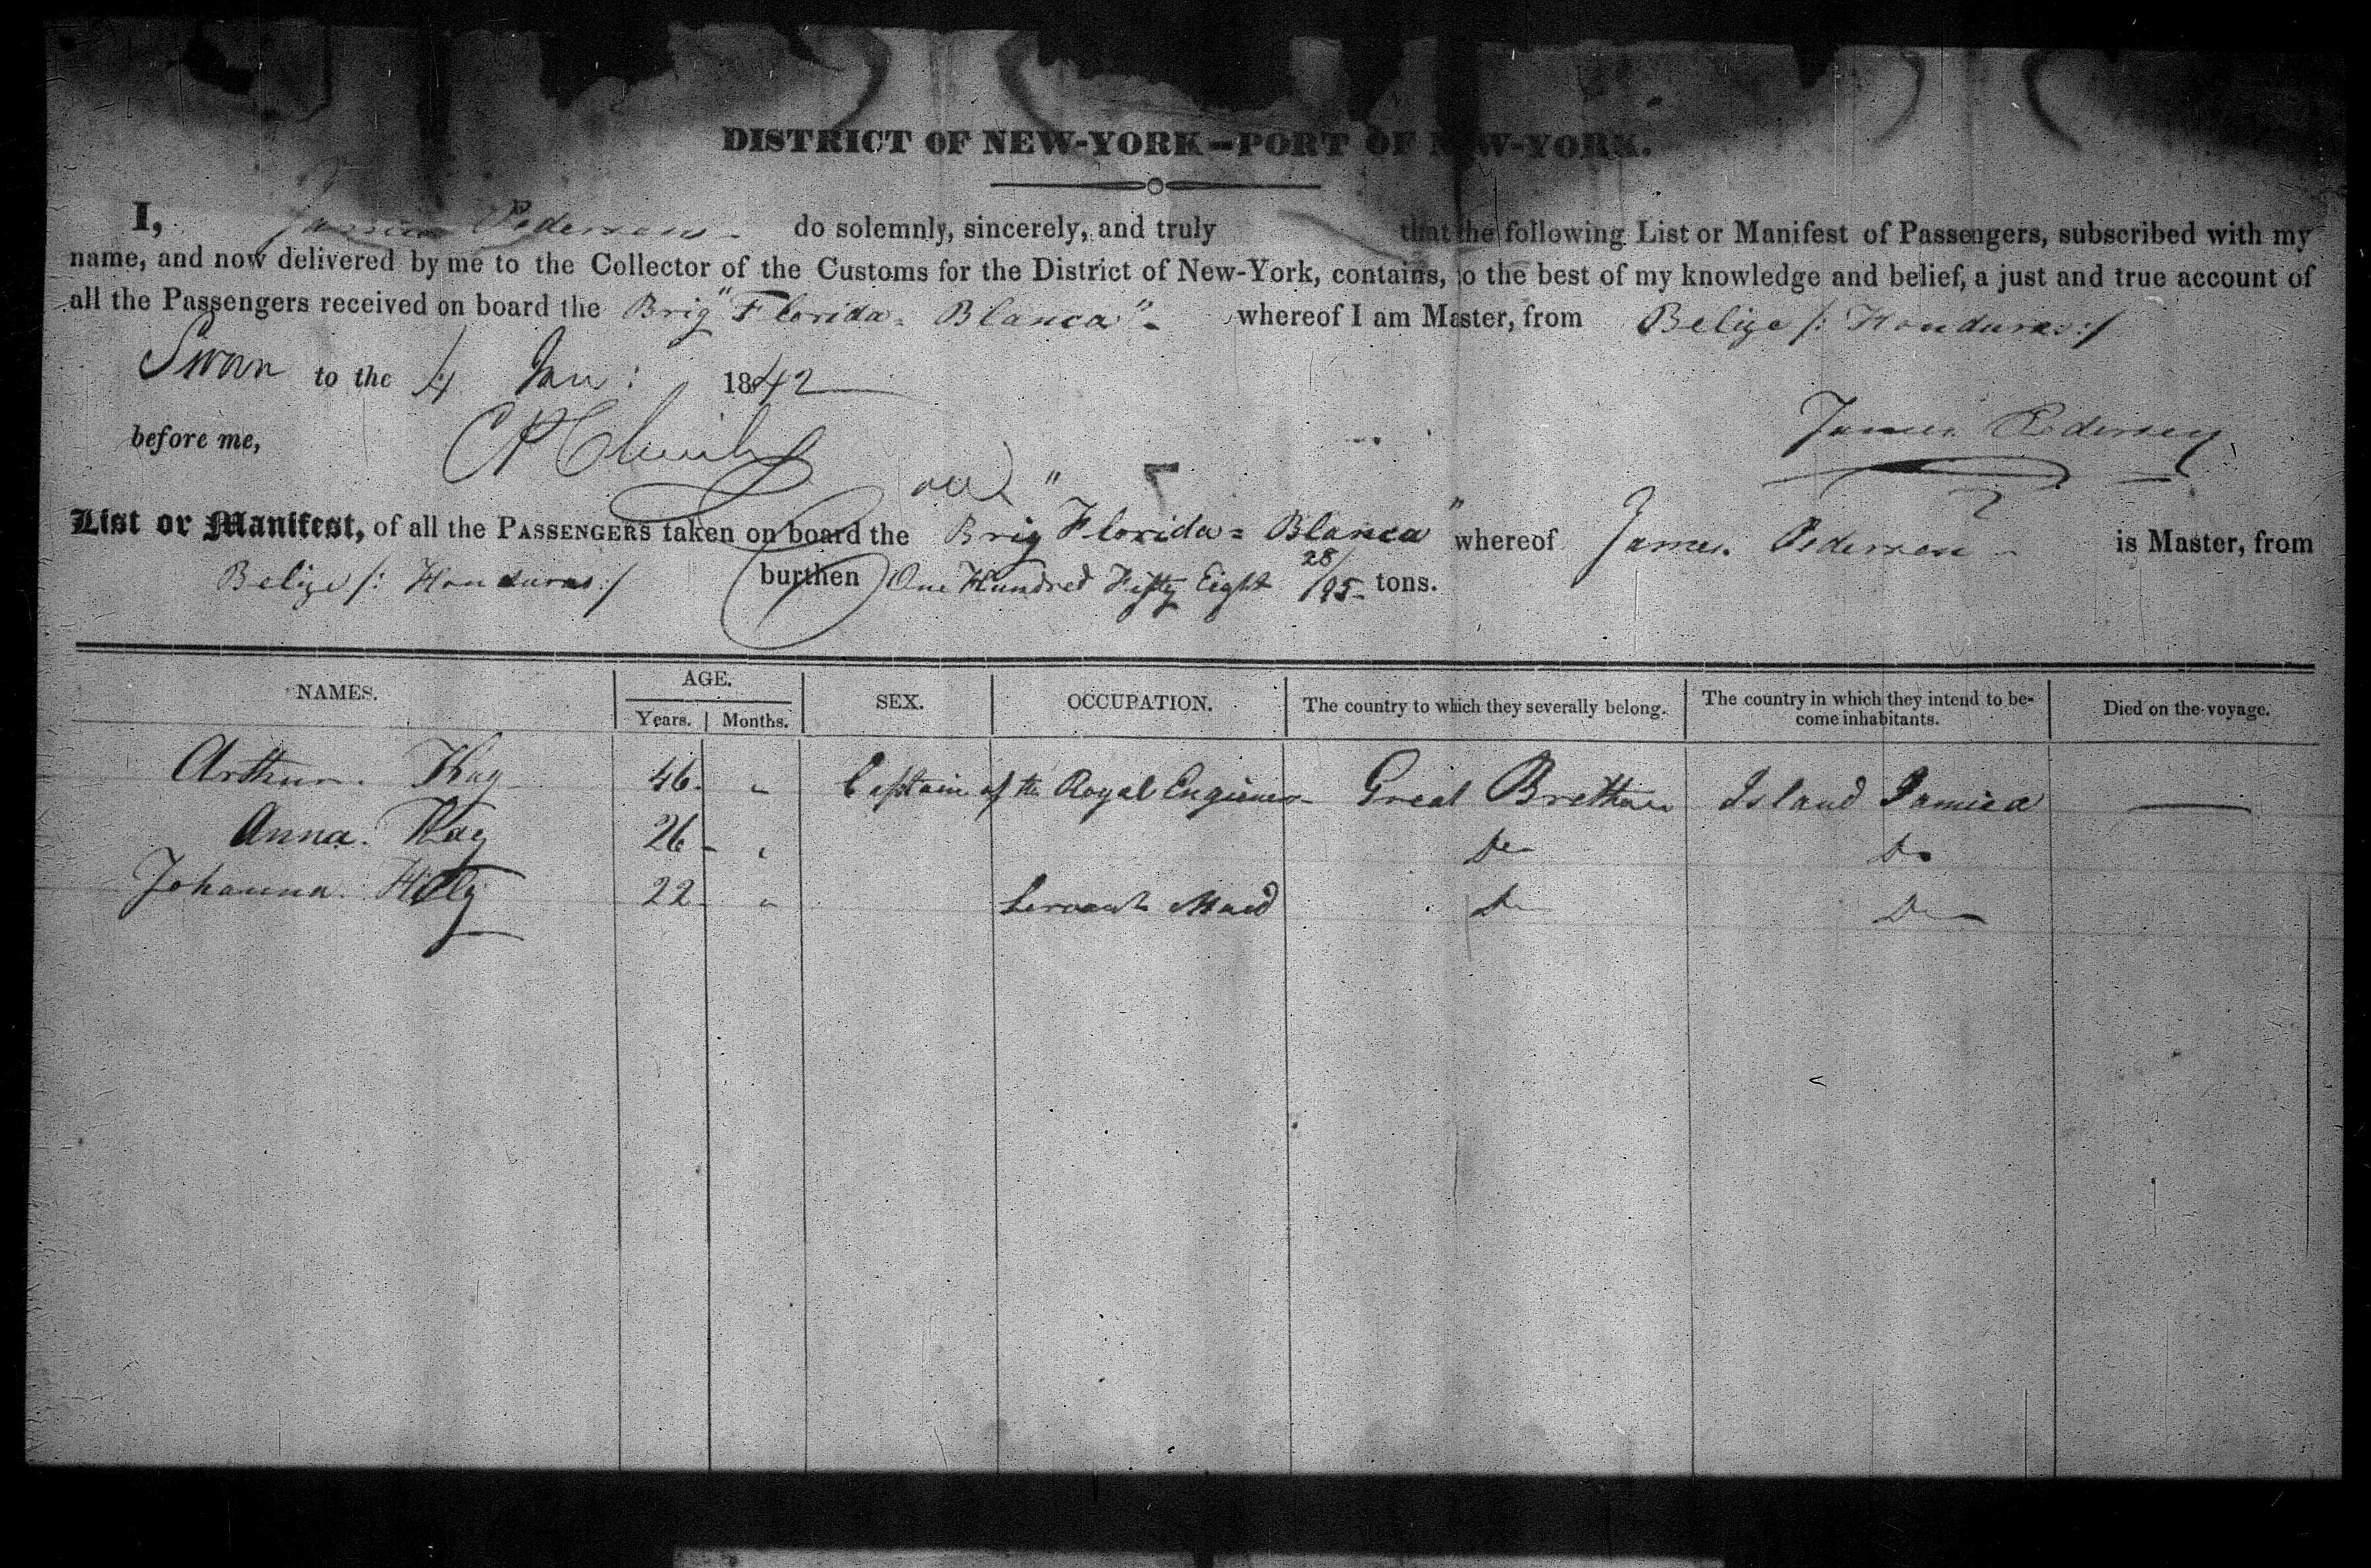 DISTRICT OF NEW-YORK—PORT OF NEW-YORK.
I, James Pedersen do solemnly, sincerely, and truly that the following List or Manifest of Passengers, subscribed with my
name, and now delivered by me to the Collector of the Customs for the District of New-York, contains, to the best of my knowledge and belief, a just and true account of
all the Passengers received on board the Brig "Florida=Blanca" whereof I am Master, from Belize /: Honduras :/
Sworn to the 4 Jan: 1842
before me,
James Pedersen
List or Manifest, of all the PASSENGERS taken on board the Brig "Florida=Blanca" whereof James Pedersen is Master, from
Belize /: Honduras :/ burthen One Hundred Fifty Eight 28/95 tons.
NAMES. AGE. Years. Months. SEX. OCCUPATION. The country to which they severally belong. The country in which they intend to become inhabitants. Died on the voyage.
Arthur Kay 46 " Captain of the Royal Engineers Great Brettan Island Jamica —
Anna Kay 26 " Do Do
Johanna 22 " Servant Maid Do Do